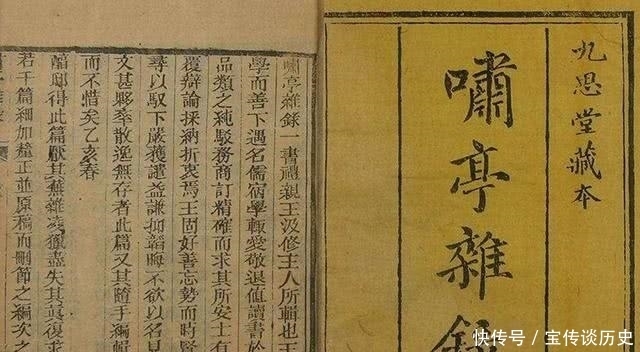 九思堂藏本
嘯亭雜錄
嘯亭雜錄一書禮親王汲修主人所輯也王
學而善下遇名儒宿學輒愛敬退值讀書於
品類之純駁務商訂精確而求其所安士有
覆辯論採納折衷焉王固好善忘勢而時賢
尋以馭下嚴獲譴益謙抑韜晦不欲以名見
文甚夥率散逸無存者此篇又其隨手編輯
而不惜矣乙亥春
醕邸得此篇厭其蕪雜凌獵盡失其眞復求
若干篇細加釐正並原稿而刪節之編次之
快传号 / 宝传谈历史